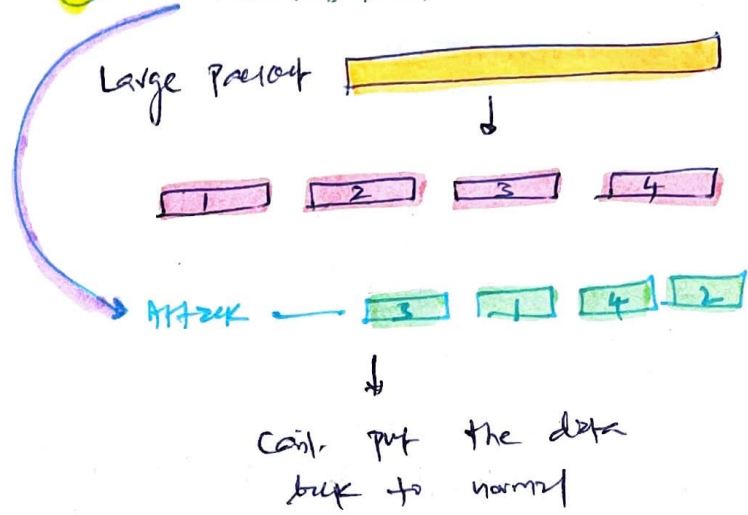 Large Packet
1 2 3 4
Attack — 3 1 4 2
Can't put the data
back to normal